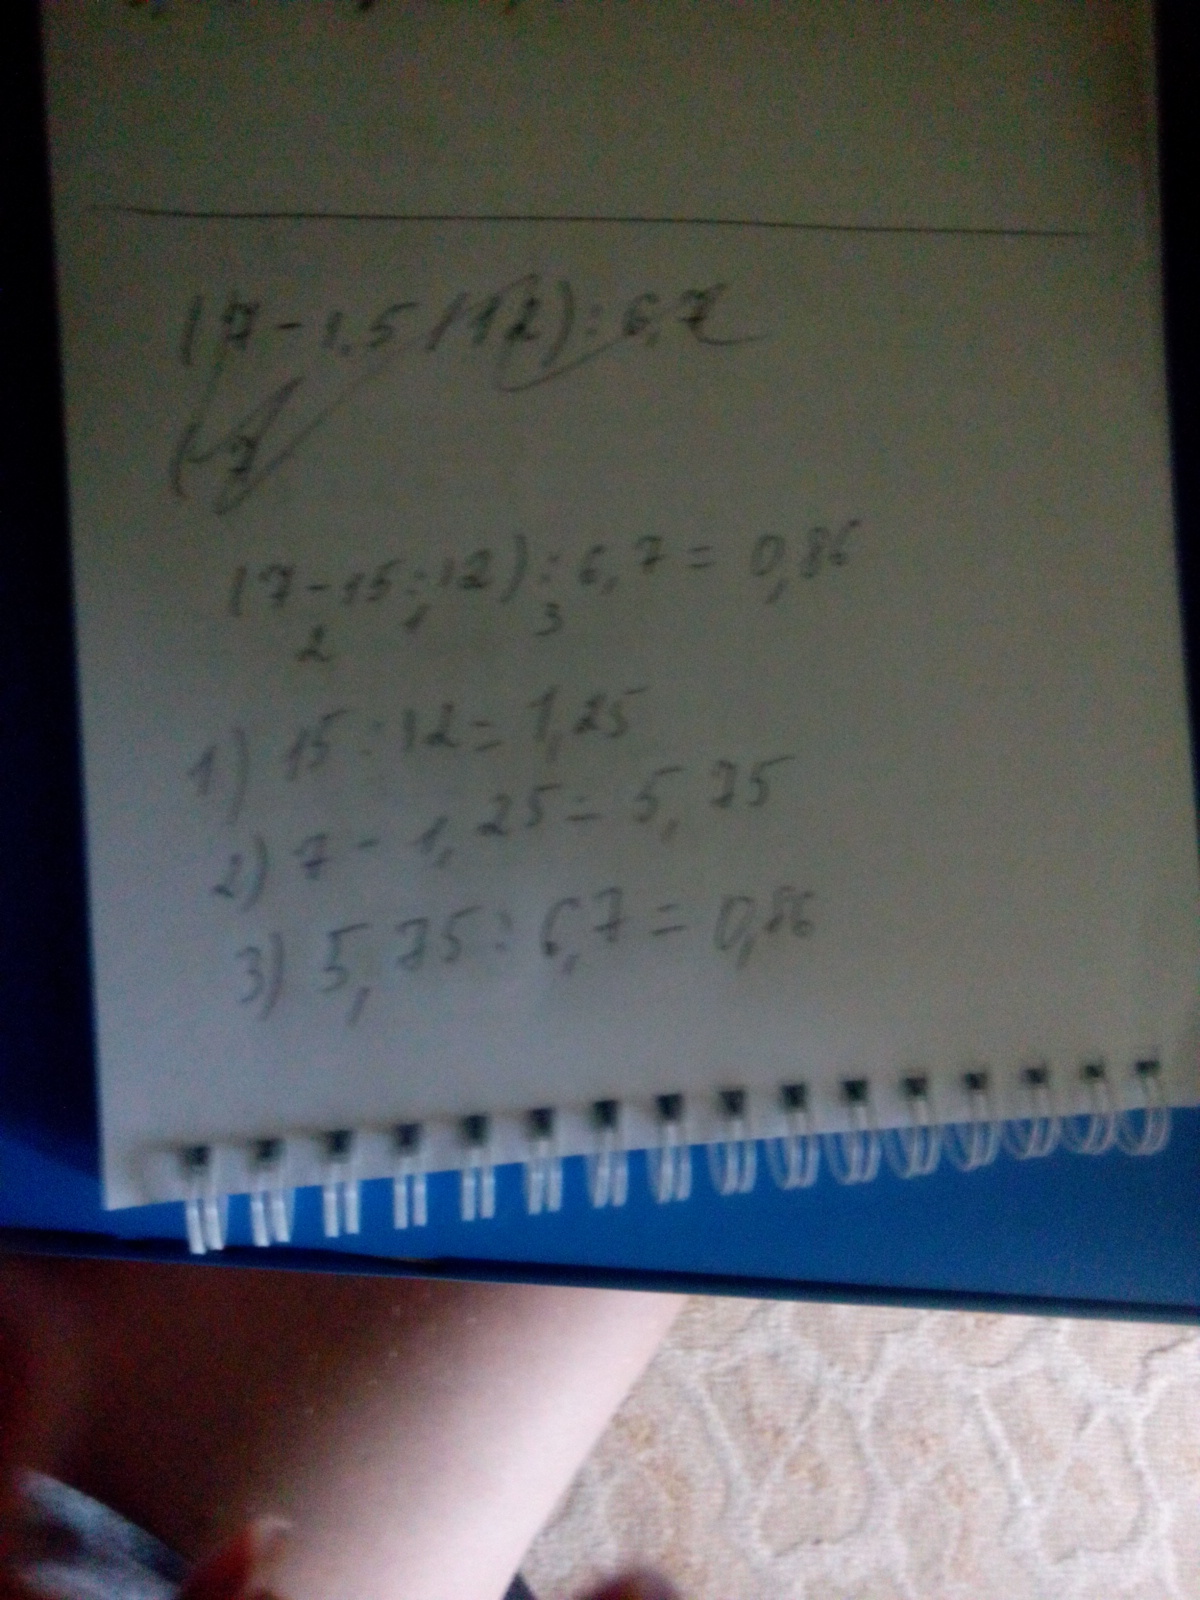 (7-1,5/12):6,7
(-7
(7-15:12):6,7=0,86
2 1 3
1) 15:12=1,25
2) 7-1,25=5,75
3) 5,75:6,7=0,86